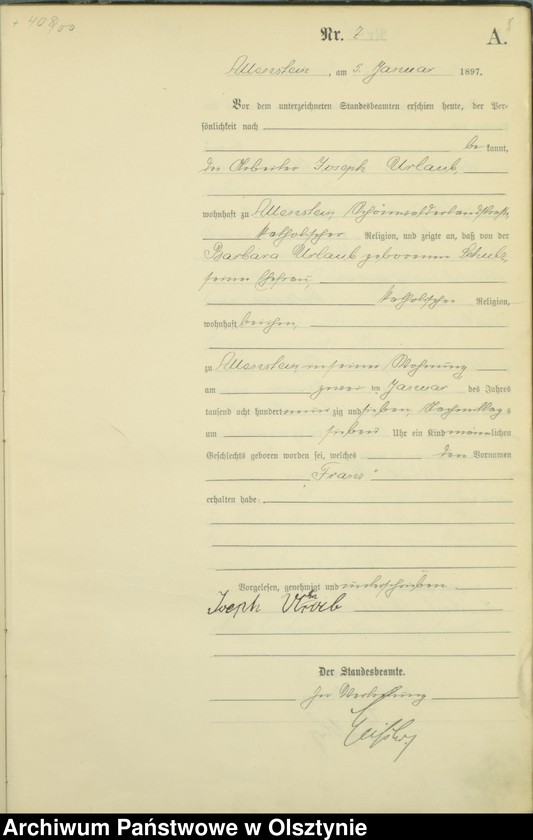 + 408/00
8
Nr. 2
A.
Allenstein, am 5. Januar 1897.
Vor dem unterzeichneten Standesbeamten erschien heute, der Per-
sönlichkeit nach
be kannt,
der Arbeiter Joseph Urlaub,
wohnhaft zu Allenstein, Schönwalderlandstraße,
katholischer Religion, und zeigte an, daß von der
Barbara Urlaub geborenen Schulz,
seiner Ehefrau,
katholischer Religion,
wohnhaft bei ihm,
zu Allenstein in seiner Wohnung
am zwei ten Januar des Jahres
tausend acht hundert neun zig und sieben Nachmittags
um sieben Uhr ein Kind männlichen
Geschlechts geboren worden sei, welches den Vornamen
"Franz"
erhalten habe.
Vorgelesen, genehmigt und unterschrieben
Joseph
Der Standesbeamte.
In Vertretung
Archiwum Państwowe w Olsztynie